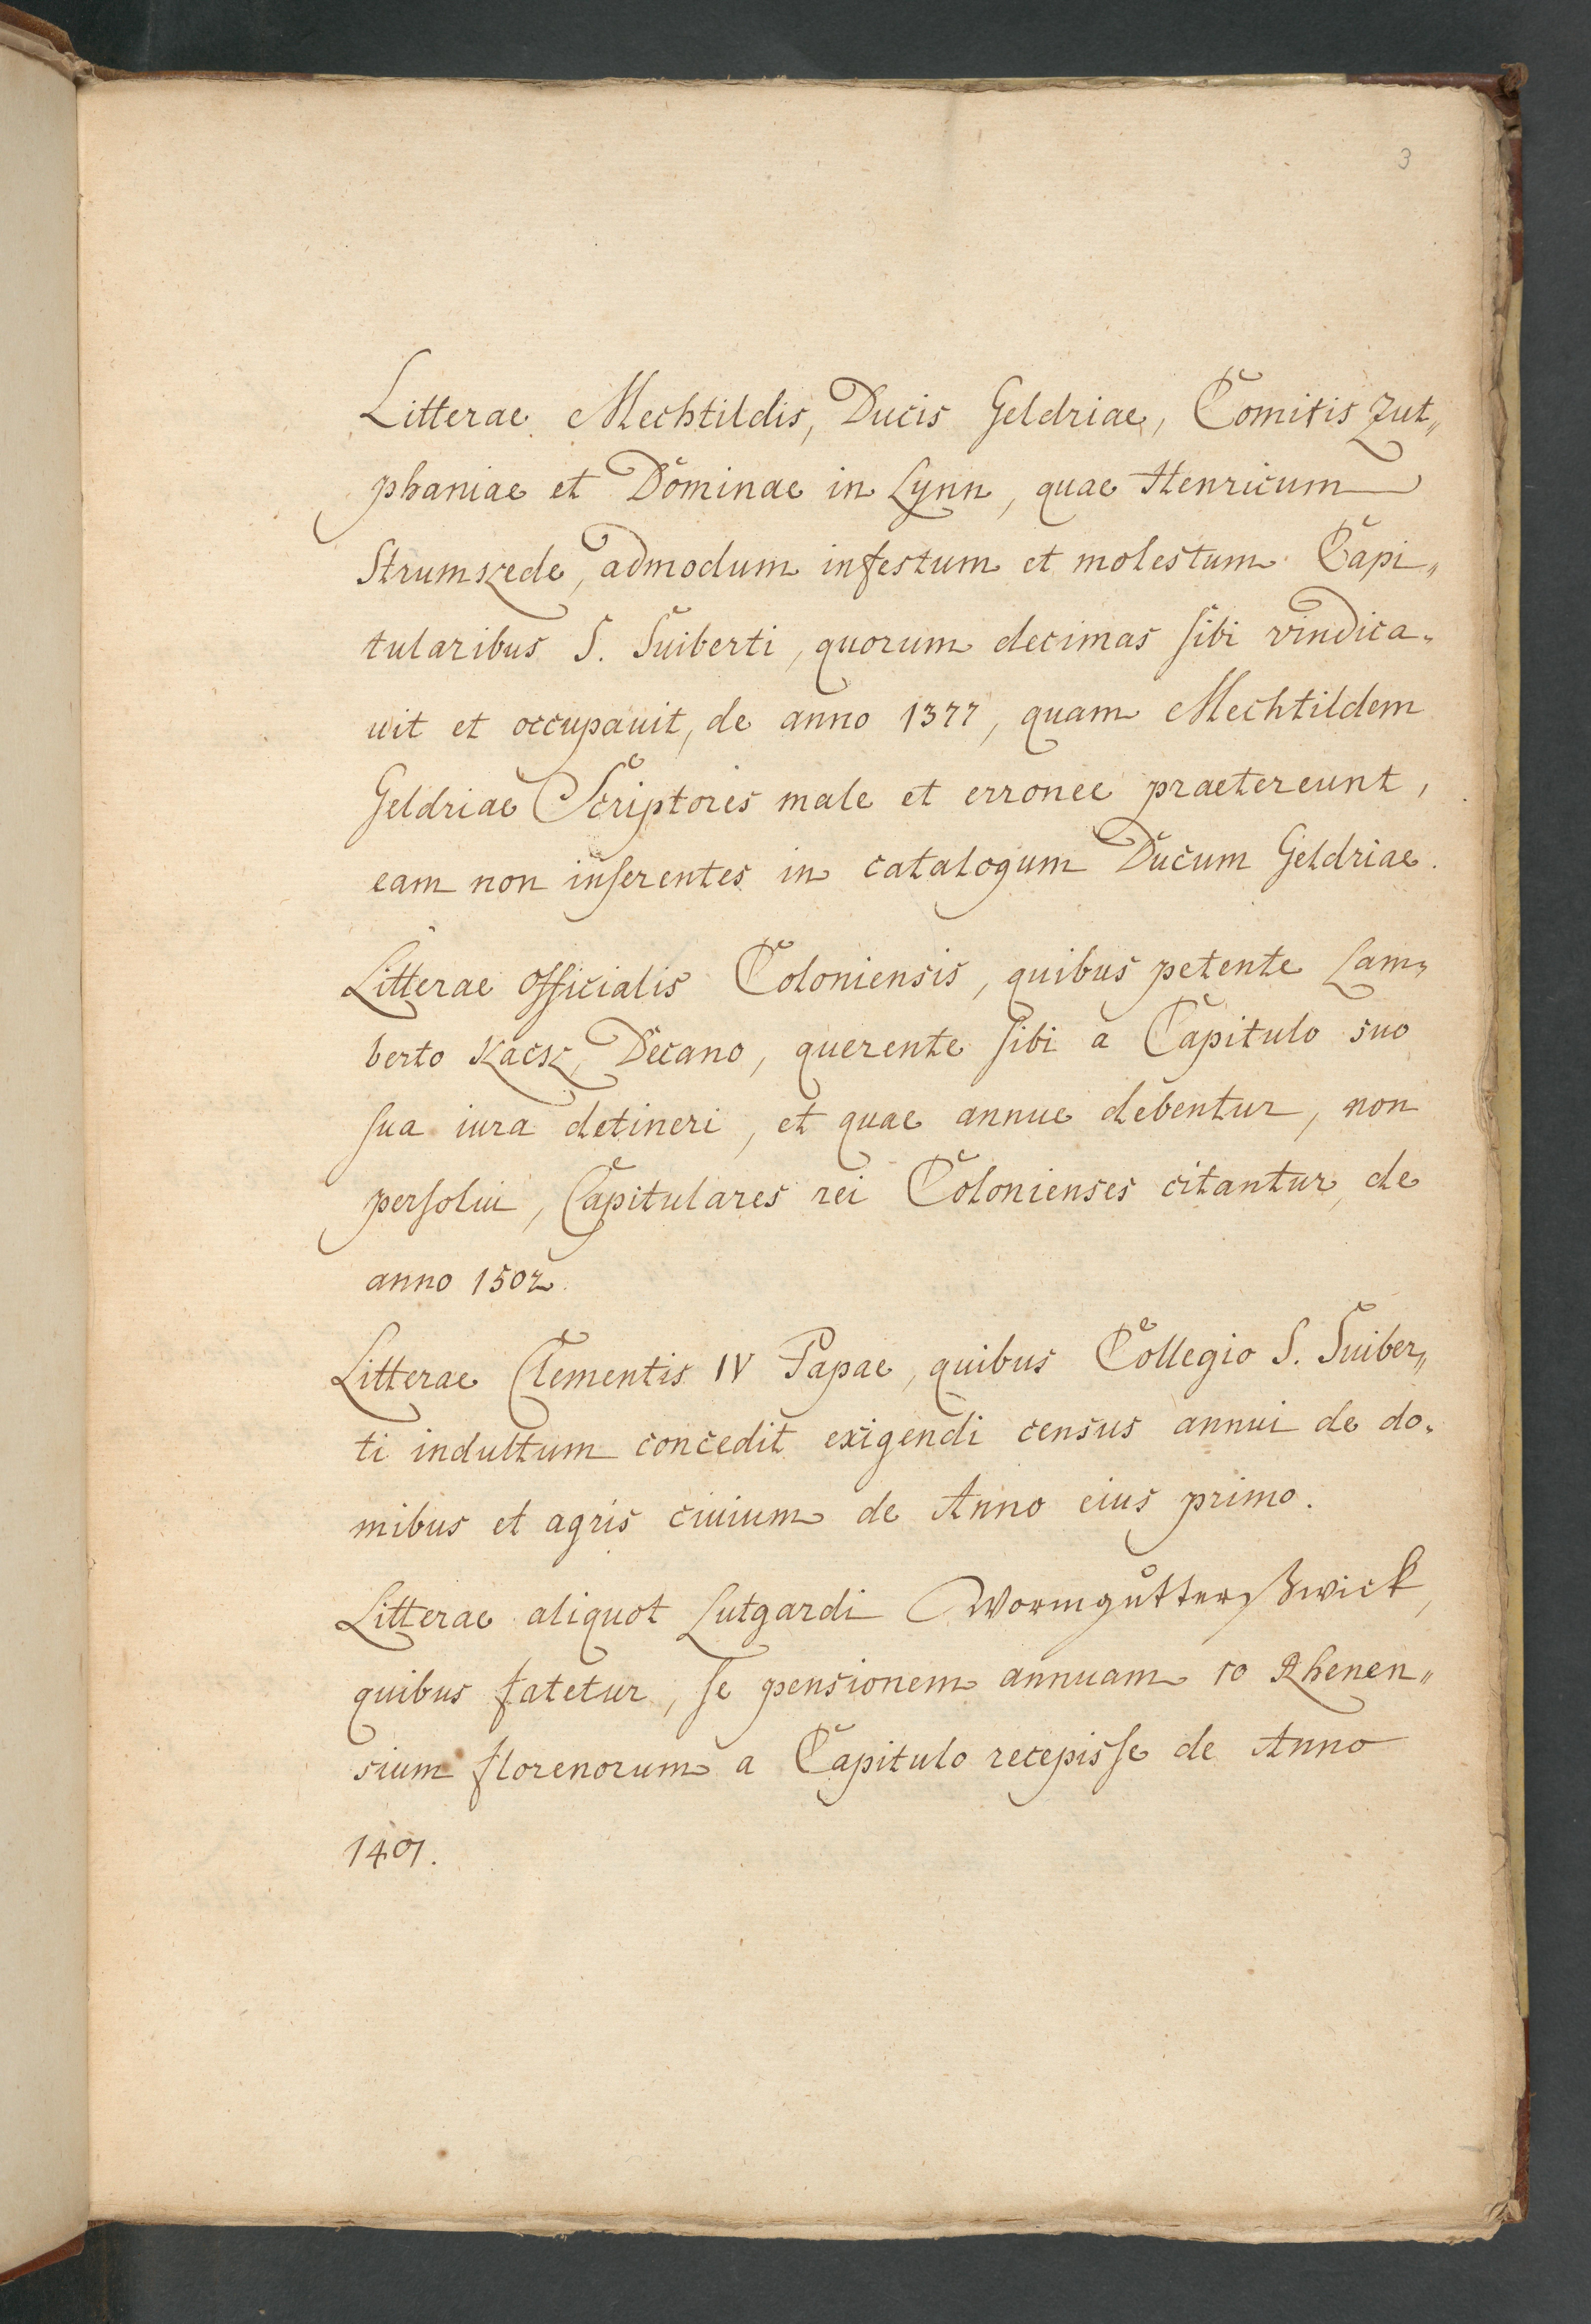 3
Litterae Mechtildis, Ducis Geldriae, Comitis Zut„
phaniae et Dominae in Lynn, quae Henricum
Strumkede, admodum infestum et molestum Capi„
tularibus S. Suiberti, quorum decimas sibi vindica„
uit et occupauit, de anno 1377, quam Mechtildem
Geldriae Scriptores male et erronee praetereunt,
eam non inserentes in catalogum Ducum Geldriae.
Litterae officialis Coloniensis, quibus petente Lam„
berto Kaesk, Decano, querente sibi a Capitulo suo
sua iura detineri, et quae annue debentur, non
persolui, Capitulares rei Colonienses citantur, de
anno 1502.
Litterae Clementis IV Papae, quibus Collegio S. Suiber„
ti indultum concedit exigendi census annui de do„
mibus et agris ciuium de Anno eius primo.
Litterae aliquot Lutgardi Wormgutterßwick,
quibus fatetur, se pensionem annuam 10 Rhenen„
sium florenorum a Capitulo recepisse de Anno
1401.